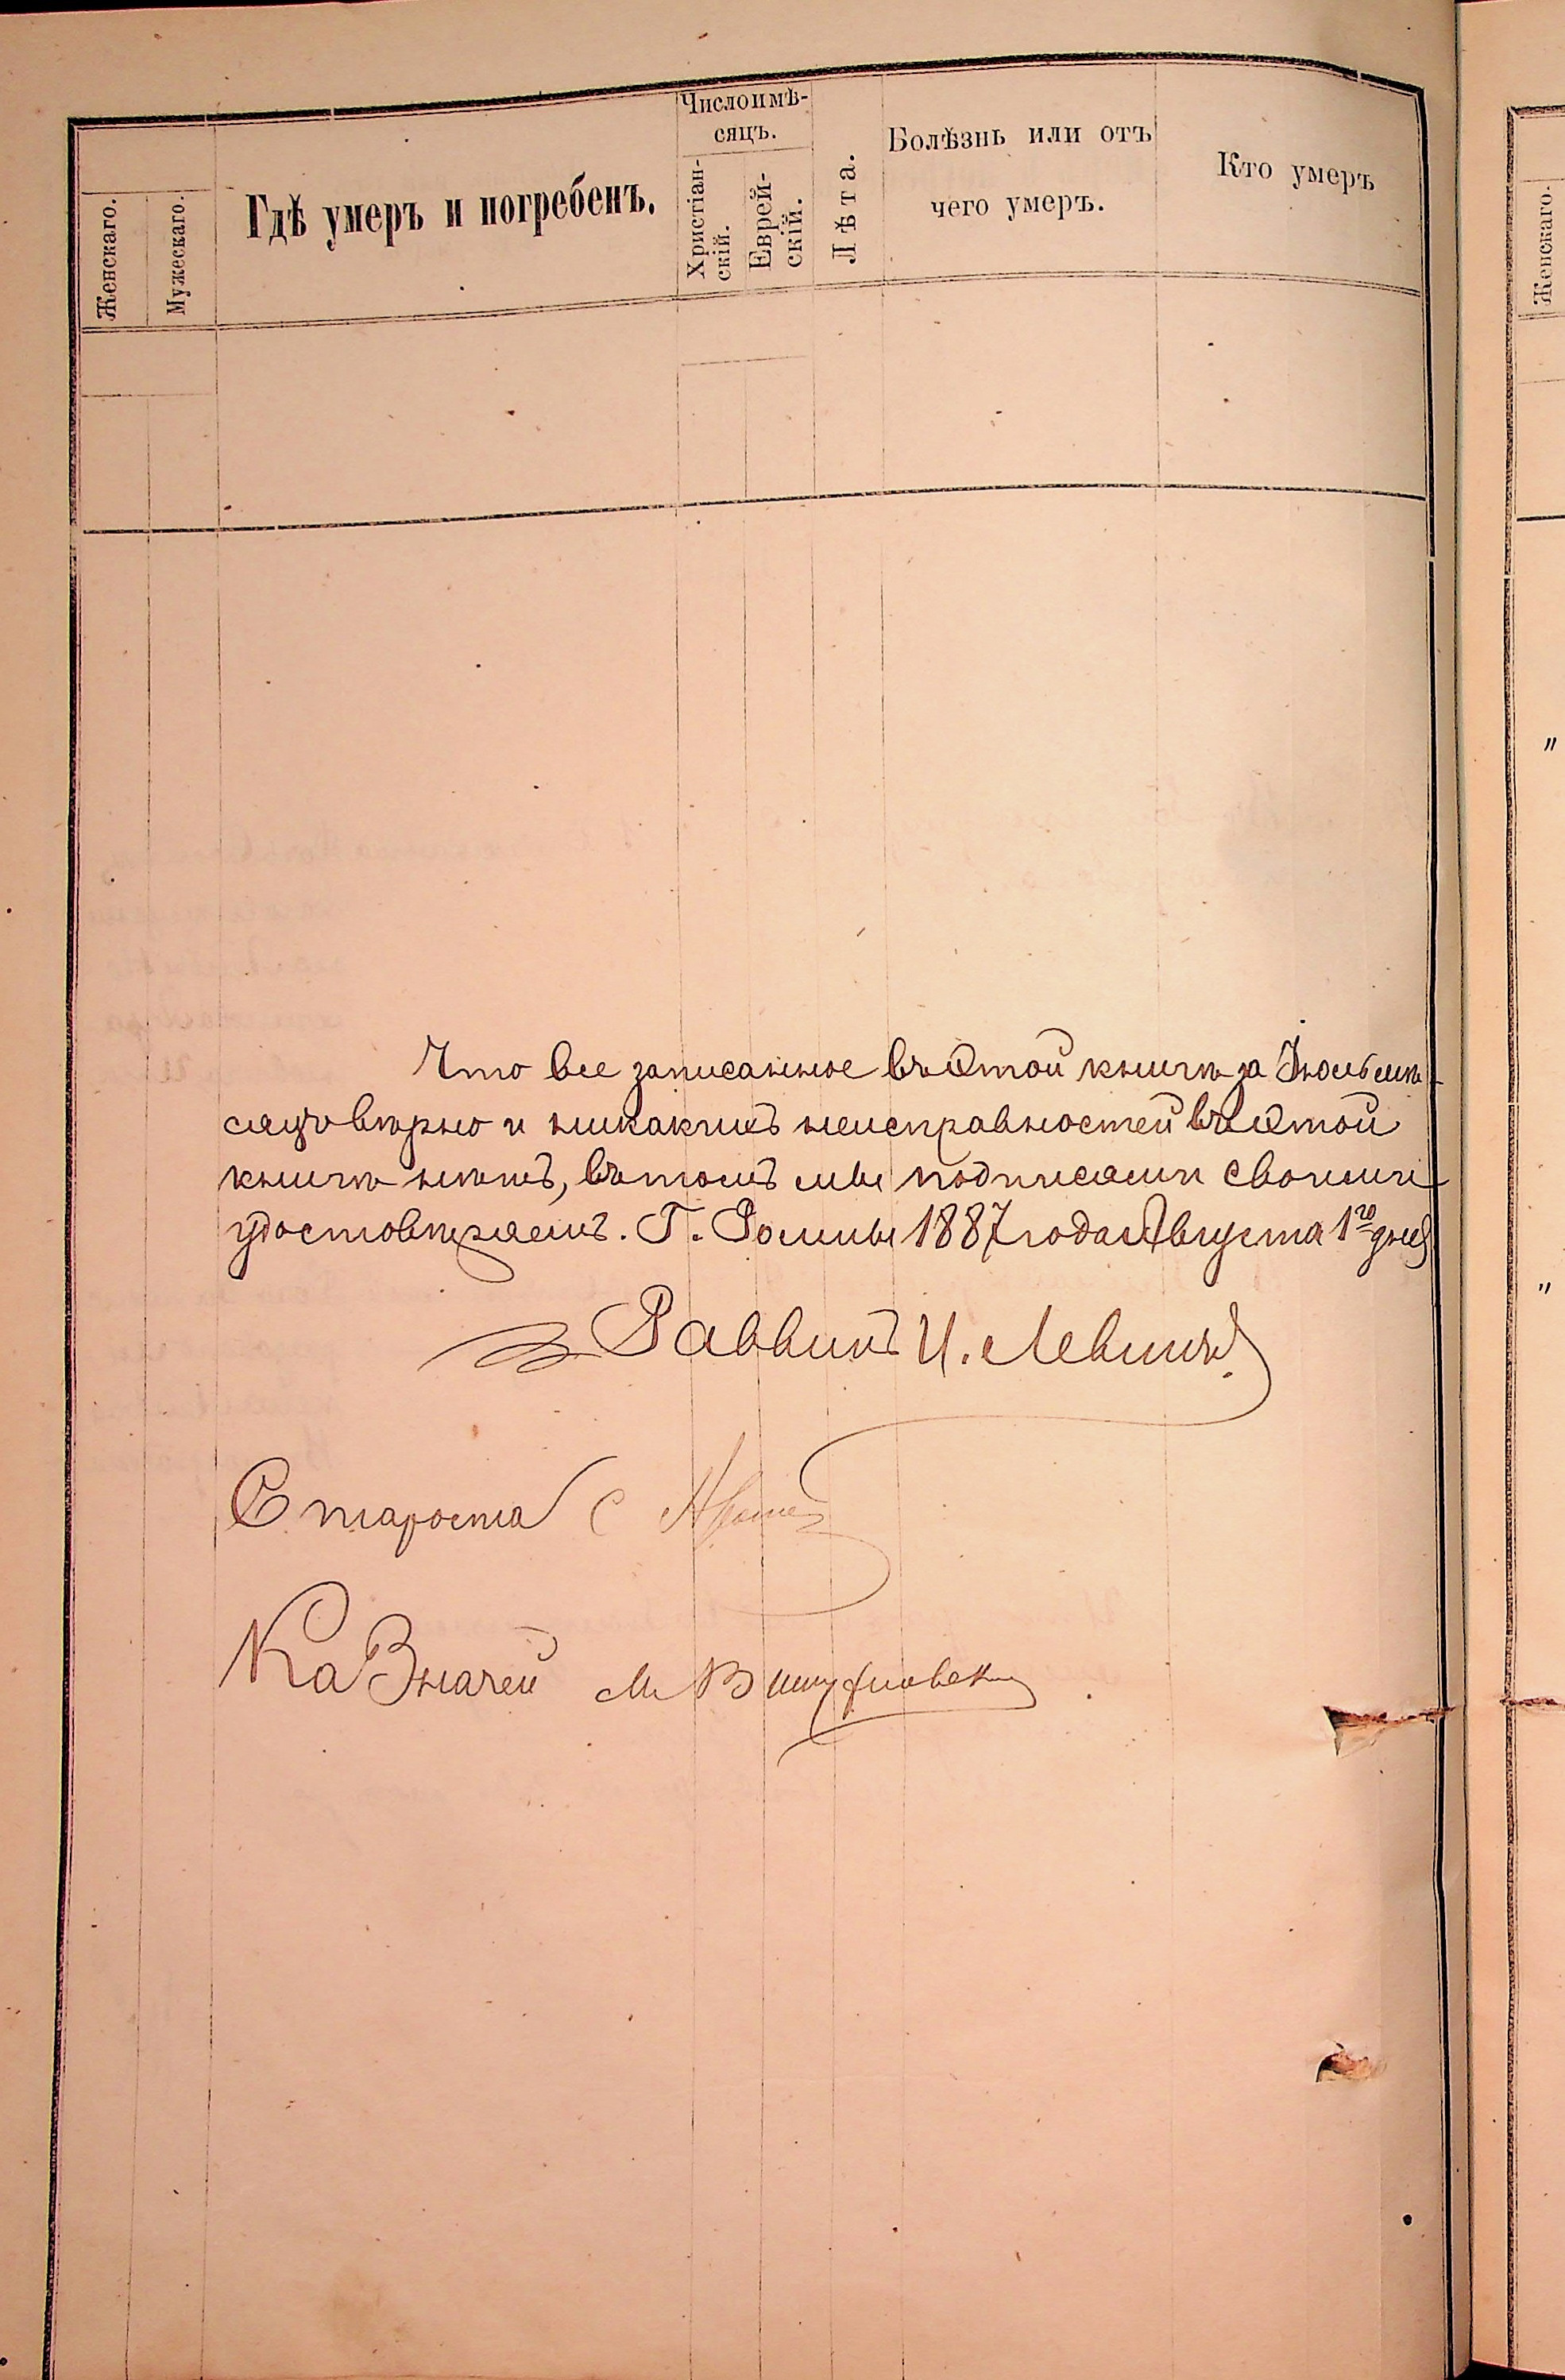 Числоимѣ-
сяцъ.
Женскаго.
Мужескаго.
Гдѣ умеръ и погребенъ.
Христіан-
скій.
Еврей-
скій.
Лѣта.
Болѣзнь или отъ
чего умеръ.
Кто умеръ
Женскаго.
"
"
Что все записанное въ этой книгѣ за Іюль мѣ-
сяцъ вѣрно и никакихъ неисправностей въ этой
книгѣ нѣтъ, въ томъ мы подписами своими
удостовѣряемъ. Г. Ромны 1887 года Августа 1го дня
Раввинъ И. Левинъ
Староста С
Казначей М